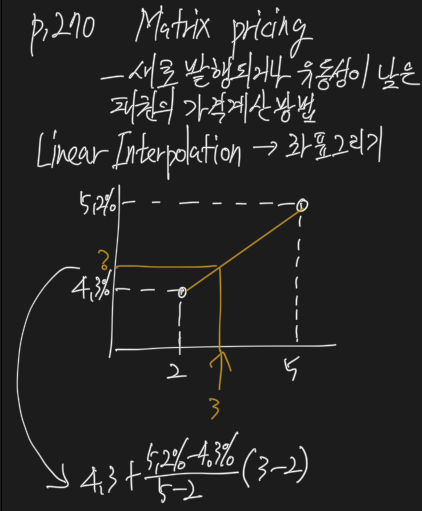 p.270 Matrix pricing
- 새로 발행되거나 유동성이 낮은
채권의 가격계산방법
Linear Interpolation → 좌표그리기
5.2%
?
4.3%
2
5
3
4.3 + \frac{5.2% - 4.3%}{5-2} (3-2)